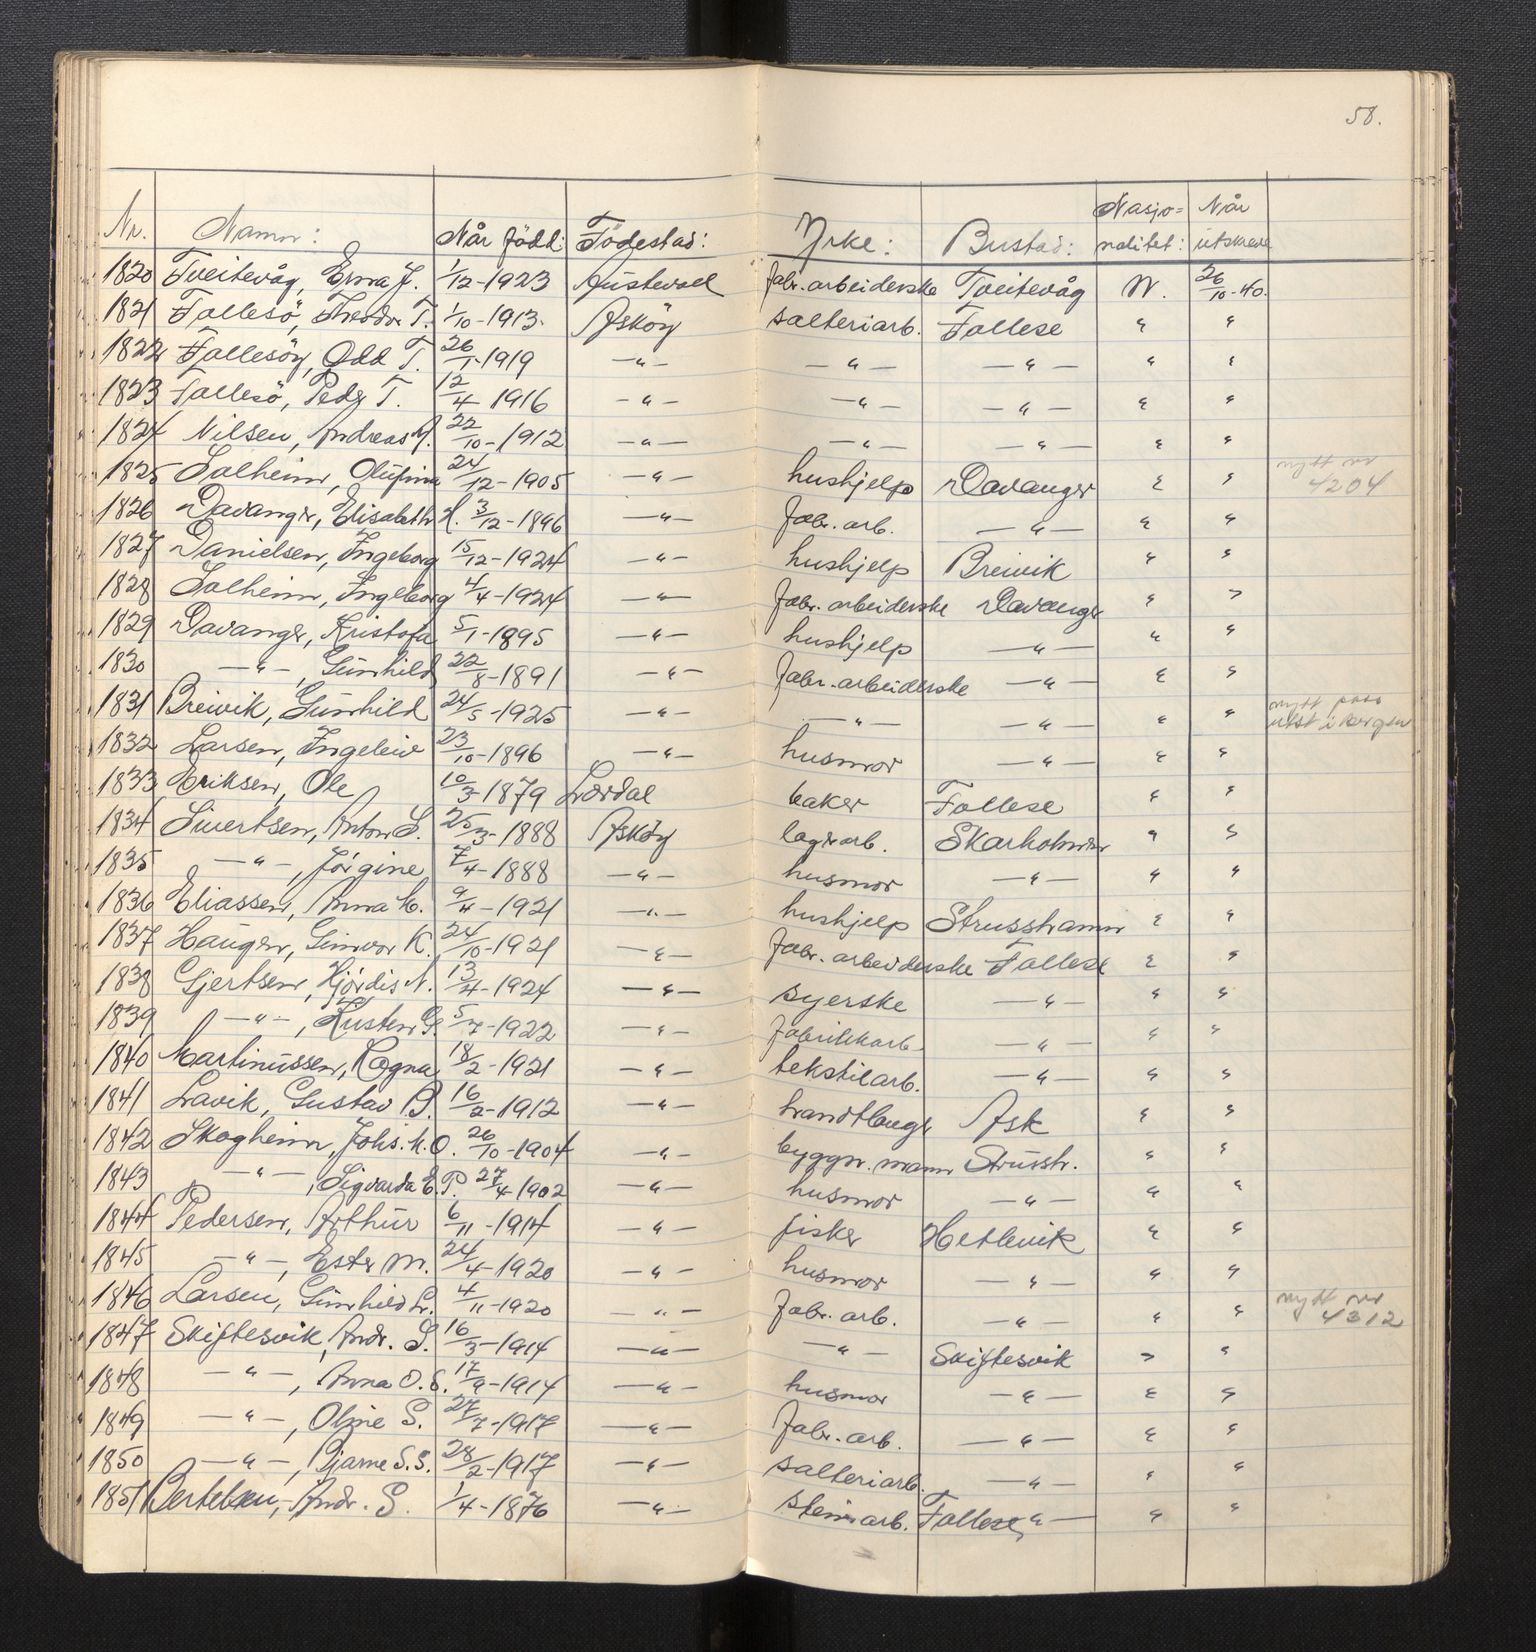 58.
Nr. Namn: Når född: Födestad: Yrke: Bustad: Nasjo= nalitet: Når utskreve
1820 Tveitevåg, Erna J. 1/12-1923 Austevoll fabr.arbeiderske Tveitevåg N. 26/10-40.
1821 Follesö, Theodor T. 1/10-1913. Asköy salteriarb. Follese " "
1822 Follesöy, Odd T. 26/1-1919 -"- -"- -"- " "
1823 Follesö, Peder T. 12/4-1916 -"- -"- -"- " "
1824 Nilsen, Andreas M. 22/10-1912 -"- -"- -"- " "
1825 Solheim, Olufina 24/12-1905 -"- hushjelp Davanger " " nytt nr 4204
1826 Davanger, Elisabeth H. 3/12-1896 -"- fabr.arb. -"- " "
1827 Danielsen, Ingeborg 15/12-1924 -"- hushjelp Breivik " "
1828 Solheim, Ingeborg 4/4-1924 -"- fabr.arbeiderske Davanger " "
1829 Davanger, Kristofa 5/1-1895 -"- hushjelp -"- " "
1830 -"-, Gunhild 22/8-1891 -"- fabr.arbeiderske -"- " "
1831 Breivik, Gunhild 24/5-1925 -"- -"- -"- " " nytt pass utst i Bergen
1832 Larsen, Ingeleiv 23/10-1896 -"- husmor -"- " "
1833 Eriksen, Ole 10/3-1879 Lærdal baker Follese " "
1834 Sivertsen, Anton S. 25/3-1888 Asköy lagerarb. Skarholmen " "
1835 -"-, Jörgine 7/4-1888 -"- husmor -"- " "
1836 Eliassen, Anna M. 9/4-1921 -"- hushjelp Strusshamn " "
1837 Haugen, Gunvor K. 24/10-1921 -"- fabr.arbeiderske Follese " "
1838 Gjertsen, Hjördis N. 13/4-1924 -"- syerske -"- " "
1839 -"-, Kusten G. 5/7-1922 -"- fabrikkarb. -"- " "
1840 Martinussen, Ragna 18/2-1921 -"- tekstilarb. -"- " "
1841 Lavik, Gustav B. 16/2-1912 -"- handtlanger Ask " "
1842 Skogheim, Johs. M.O. 26/10-1904 -"- byggn.mann Strussh. " "
1843 -"-, Sigvarda E.P. 27/4-1902 -"- husmor -"- " "
1844 Pedersen, Arthur 6/11-1914 -"- fisker Hetlevik " "
1845 -"-, Ester M. 24/4-1920 -"- husmor -"- " "
1846 Larsen, Gunhild L. 4/11-1920 -"- fabr.arb. -"- " " nytt nr 4312
1847 Skiftesvik, Andr. S. 16/3-1914 -"- -"- Skiftesvik " "
1848 -"-, Anna O.S. 17/9-1914 -"- husmor -"- " "
1849 -"-, Oline S. 27/7-1917 -"- fabr.arb. -"- " "
1850 -"-, Bjarne S.S. 28/2-1917 -"- salteriarb. -"- " "
1851 Bertelsen, Andr. S. 1/4-1876 -"- steinarb. Follese -"- " "